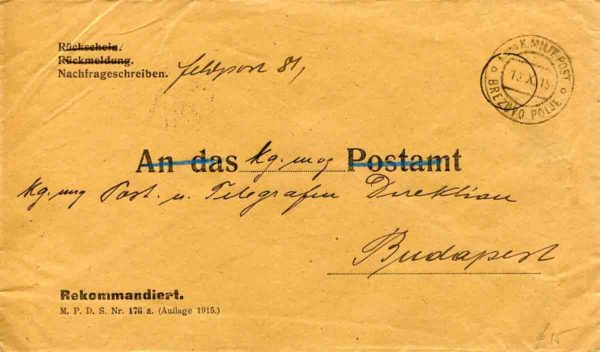 Rückschein.
Rückmeldung.
Nachfrageschreiben.
feldpost 81,
K.MILIT.POST
BREZOVO POLJE
An das kg. ung Postamt
kg. ung Post. u. Telegrafen Direktion
Budapest
Rekommandiert.
M. P. D. S. Nr. 176 a. (Auflage 1915.)